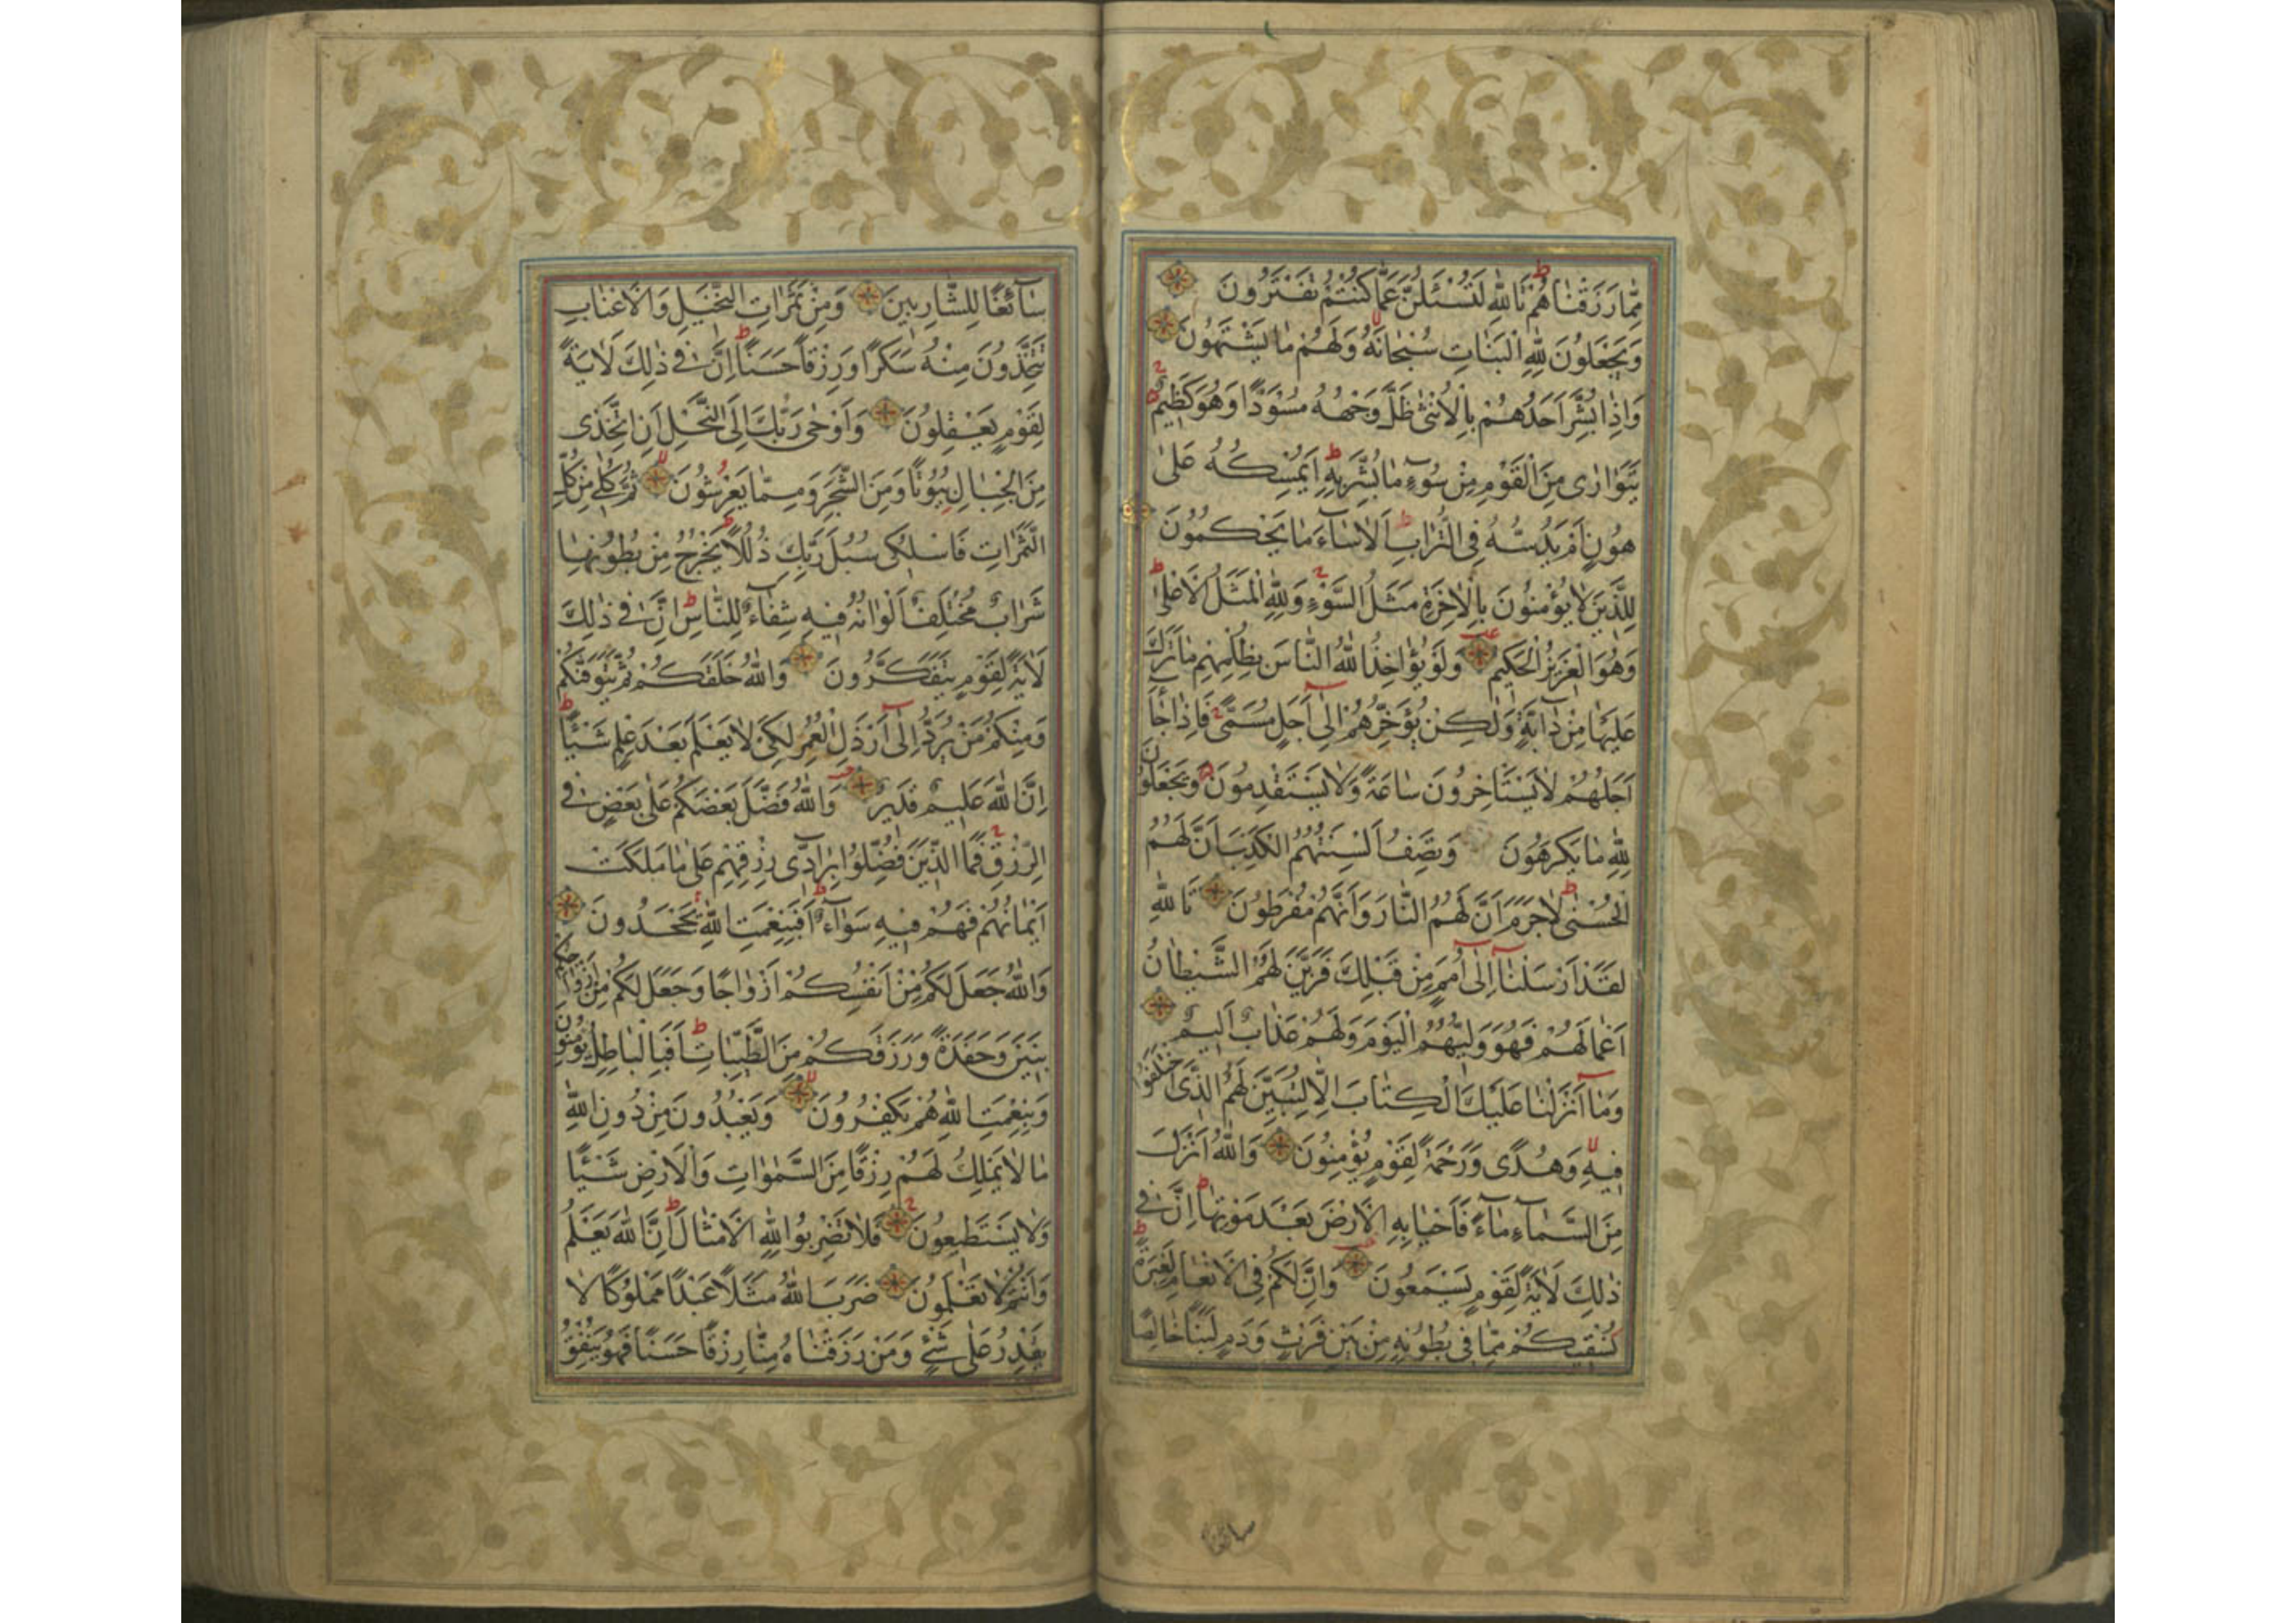 مِمَّا رَزَقْنَاهُمْ تَاللّٰهِ لَتُسْئَلُنَّ عَمَّا كُنْتُمْ تَفْتَرُونَ
وَيَجْعَلُونَ لِلّٰهِ الْبَنَاتِ سُبْحَانَهُ وَلَهُمْ مَا يَشْتَهُونَ
وَاِذَا بُشِّرَ اَحَدُهُمْ بِالْاُنْثٰى ظَلَّ وَجْهُهُ مُسْوَدًّا وَهُوَ كَظِيمٌ
يَتَوَارٰى مِنَ الْقَوْمِ مِنْ سُوءِ مَا بُشِّرَ بِهِ اَيُمْسِكُهُ عَلٰى
هُونٍ اَمْ يَدُسُّهُ فِى التُّرَابِ اَلَا سَاءَ مَا يَحْكُمُونَ
لِلَّذِينَ لَا يُؤْمِنُونَ بِالْاٰخِرَةِ مَثَلُ السَّوْءِ وَلِلّٰهِ الْمَثَلُ الْاَعْلٰى
وَهُوَ الْعَزِيزُ الْحَكِيمُ وَلَوْ يُؤَاخِذُ اللّٰهُ النَّاسَ بِظُلْمِهِمْ مَا تَرَكَ
عَلَيْهَا مِنْ دَابَّةٍ وَلٰكِنْ يُؤَخِّرُهُمْ اِلٰى اَجَلٍ مُسَمًّى فَاِذَا جَاءَ
اَجَلُهُمْ لَا يَسْتَأْخِرُونَ سَاعَةً وَلَا يَسْتَقْدِمُونَ وَيَجْعَلُونَ
لِلّٰهِ مَا يَكْرَهُونَ وَتَصِفُ اَلْسِنَتُهُمُ الْكَذِبَ اَنَّ لَهُمُ
الْحُسْنٰى لَا جَرَمَ اَنَّ لَهُمُ النَّارَ وَاَنَّهُمْ مُفْرَطُونَ تَاللّٰهِ
لَقَدْ اَرْسَلْنَا اِلٰى اُمَمٍ مِنْ قَبْلِكَ فَزَيَّنَ لَهُمُ الشَّيْطَانُ
اَعْمَالَهُمْ فَهُوَ وَلِيُّهُمُ الْيَوْمَ وَلَهُمْ عَذَابٌ اَلِيمٌ
وَمَا اَنْزَلْنَا عَلَيْكَ الْكِتَابَ اِلَّا لِتُبَيِّنَ لَهُمُ الَّذِى اخْتَلَفُوا
فِيهِ وَهُدًى وَرَحْمَةً لِقَوْمٍ يُؤْمِنُونَ وَاللّٰهُ اَنْزَلَ
مِنَ السَّمَاءِ مَاءً فَاَحْيَا بِهِ الْاَرْضَ بَعْدَ مَوْتِهَا اِنَّ فِى
ذٰلِكَ لَاٰيَةً لِقَوْمٍ يَسْمَعُونَ وَاِنَّ لَكُمْ فِى الْاَنْعَامِ لَعِبْرَةً
نُسْقِيكُمْ مِمَّا فِى بُطُونِهِ مِنْ بَيْنِ فَرْثٍ وَدَمٍ لَبَنًا خَالِصًا
سائغا
سَائِغًا لِلشَّارِبِينَ وَمِنْ ثَمَرَاتِ النَّخِيلِ وَالْاَعْنَابِ
تَتَّخِذُونَ مِنْهُ سَكَرًا وَرِزْقًا حَسَنًا اِنَّ فِى ذٰلِكَ لَاٰيَةً
لِقَوْمٍ يَعْقِلُونَ وَاَوْحٰى رَبُّكَ اِلَى النَّحْلِ اَنِ اتَّخِذِى
مِنَ الْجِبَالِ بُيُوتًا وَمِنَ الشَّجَرِ وَمِمَّا يَعْرِشُونَ ثُمَّ كُلِى مِنْ كُلِّ
الثَّمَرَاتِ فَاسْلُكِى سُبُلَ رَبِّكِ ذُلُلًا يَخْرُجُ مِنْ بُطُونِهَا
شَرَابٌ مُخْتَلِفٌ اَلْوَانُهُ فِيهِ شِفَاءٌ لِلنَّاسِ اِنَّ فِى ذٰلِكَ
لَاٰيَةً لِقَوْمٍ يَتَفَكَّرُونَ وَاللّٰهُ خَلَقَكُمْ ثُمَّ يَتَوَفّٰيكُمْ
وَمِنْكُمْ مَنْ يُرَدُّ اِلٰى اَرْذَلِ الْعُمُرِ لِكَىْ لَا يَعْلَمَ بَعْدَ عِلْمٍ شَيْئًا
اِنَّ اللّٰهَ عَلِيمٌ قَدِيرٌ وَاللّٰهُ فَضَّلَ بَعْضَكُمْ عَلٰى بَعْضٍ فِى
الرِّزْقِ فَمَا الَّذِينَ فُضِّلُوا بِرَادِّى رِزْقِهِمْ عَلٰى مَا مَلَكَتْ
اَيْمَانُهُمْ فَهُمْ فِيهِ سَوَاءٌ اَفَبِنِعْمَتِ اللّٰهِ يَجْحَدُونَ
وَاللّٰهُ جَعَلَ لَكُمْ مِنْ اَنْفُسِكُمْ اَزْوَاجًا وَجَعَلَ لَكُمْ مِنْ اَزْوَاجِكُمْ
بَنِينَ وَحَفَدَةً وَرَزَقَكُمْ مِنَ الطَّيِّبَاتِ اَفَبِالْبَاطِلِ يُؤْمِنُونَ
وَبِنِعْمَتِ اللّٰهِ هُمْ يَكْفُرُونَ وَيَعْبُدُونَ مِنْ دُونِ اللّٰهِ
مَا لَا يَمْلِكُ لَهُمْ رِزْقًا مِنَ السَّمٰوَاتِ وَالْاَرْضِ شَيْئًا
وَلَا يَسْتَطِيعُونَ فَلَا تَضْرِبُوا لِلّٰهِ الْاَمْثَالَ اِنَّ اللّٰهَ يَعْلَمُ
وَاَنْتُمْ لَا تَعْلَمُونَ ضَرَبَ اللّٰهُ مَثَلًا عَبْدًا مَمْلُوكًا لَا
يَقْدِرُ عَلٰى شَىْءٍ وَمَنْ رَزَقْنَاهُ مِنَّا رِزْقًا حَسَنًا فَهُوَ يُنْفِقُ